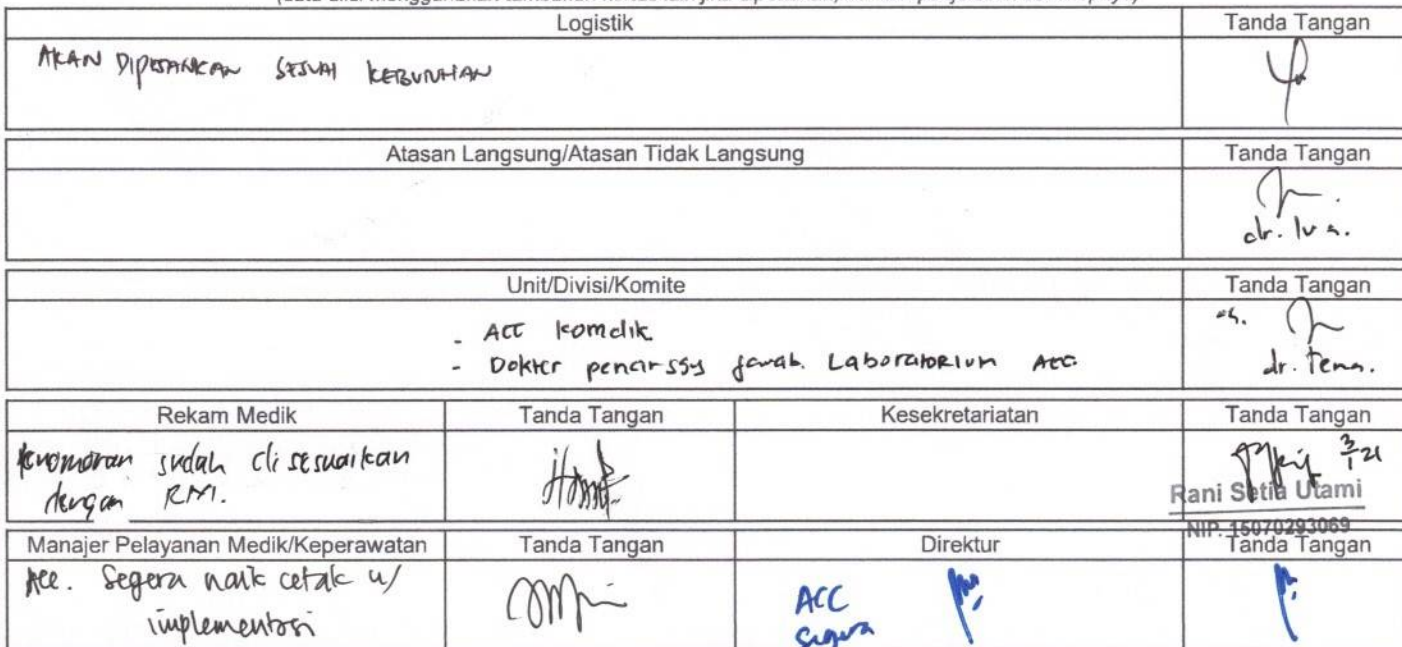 Logistik Tanda Tangan
AKAN DIPESANKAN SESUAI KEBUTUHAN
Atasan Langsung/Atasan Tidak Langsung Tanda Tangan
dr. Iva.
Unit/Divisi/Komite Tanda Tangan
- ACC Komdik
- Dokter jawab Laboratorium ACC
dr. Tema.
Rekam Medik Tanda Tangan Kesekretariatan Tanda Tangan
Penomoran sudah disesuaikan
dengan RM.
Rani Setia Utami
NIP. 15070293069
Manajer Pelayanan Medik/Keperawatan Tanda Tangan Direktur Tanda Tangan
Acc. Segera naik cetak u/
implementasi
ACC
Segera